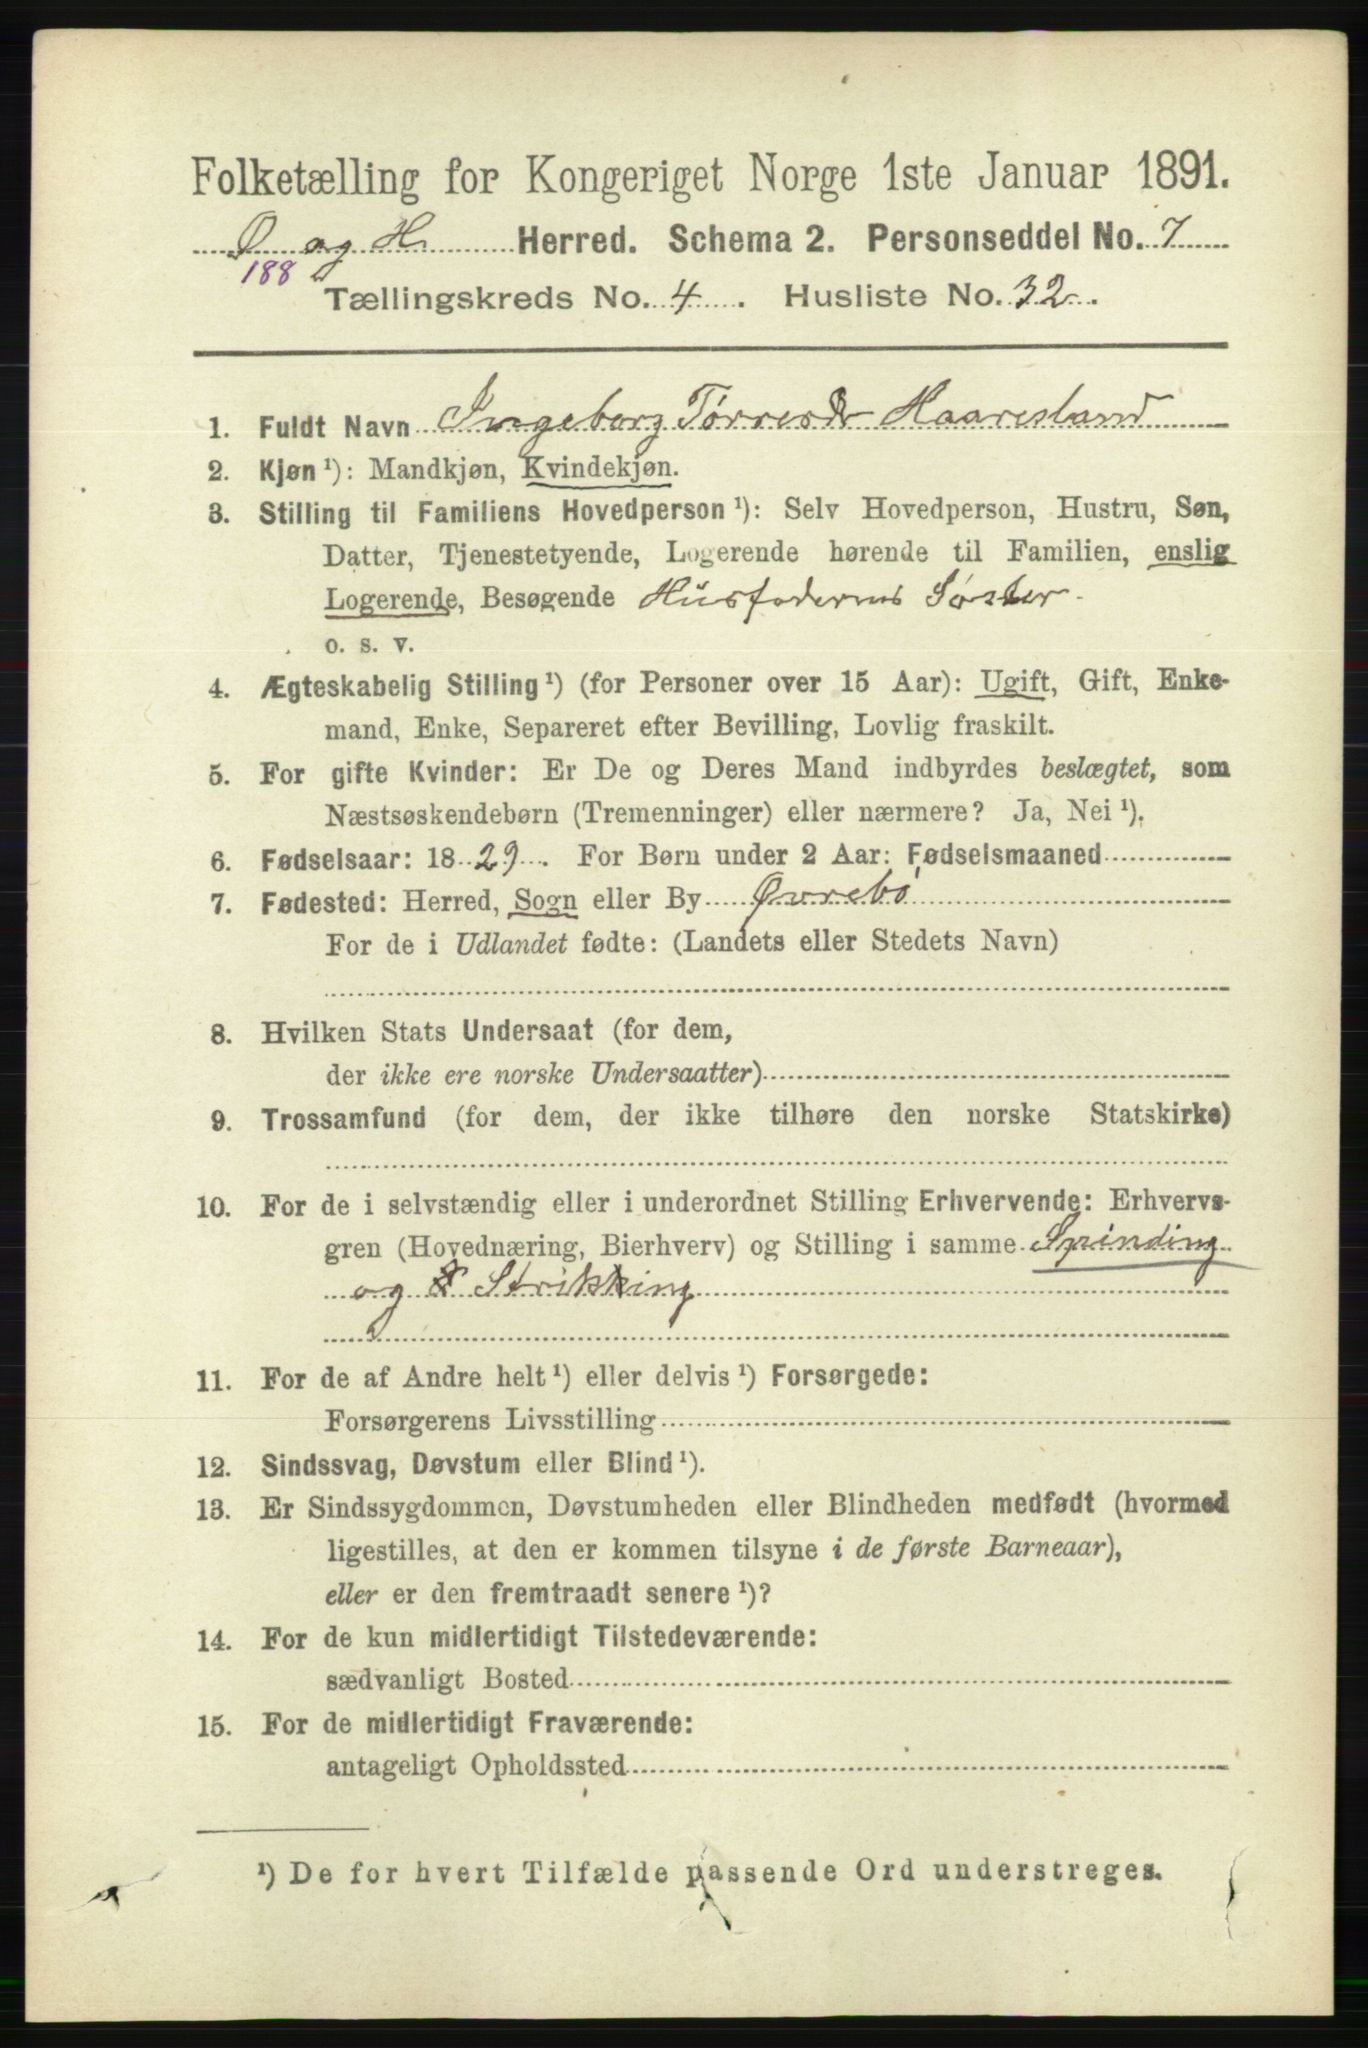 Folketælling for Kongeriget Norge 1ste Januar 1891.
Ø og H. Herred. Schema 2. Personseddel No. 7
188
Tællingskreds No. 4. Husliste No. 32.
1. Fuldt Navn Ingeborg Haaresland
2. Kjøn ¹): Mandkjøn, Kvindekjøn.
3. Stilling til Familiens Hovedperson ¹): Selv Hovedperson, Hustru, Søn,
Datter, Tjenestetyende, Logerende hørende til Familien, enslig
Logerende, Besøgende Husfaderens Søster.
o. s. v.
4. Ægteskabelig Stilling ¹) (for Personer over 15 Aar): Ugift, Gift, Enke-
mand, Enke, Separeret efter Bevilling, Lovlig fraskilt.
5. For gifte Kvinder: Er De og Deres Mand indbyrdes beslægtet, som
Næstsøskendebørn (Tremenninger) eller nærmere? Ja, Nei ¹).
6. Fødselsaar: 1829. For Børn under 2 Aar: Fødselsmaaned
7. Fødested: Herred, Sogn eller By Øvrebø
For de i Udlandet fødte: (Landets eller Stedets Navn)
8. Hvilken Stats Undersaat (for dem,
der ikke ere norske Undersaatter)
9. Trossamfund (for dem, der ikke tilhøre den norske Statskirke)
10. For de i selvstændig eller i underordnet Stilling Erhvervende: Erhvervs-
gren (Hovednæring, Bierhverv) og Stilling i samme Spinding
og Strikking
11. For de af Andre helt ¹) eller delvis ¹) Forsørgede:
Forsørgerens Livsstilling
12. Sindssvag, Døvstum eller Blind ¹).
13. Er Sindssygdommen, Døvstumheden eller Blindheden medfødt (hvormed
ligestilles, at den er kommen tilsyne i de første Barneaar),
eller er den fremtraadt senere ¹)?
14. For de kun midlertidigt Tilstedeværende:
sædvanligt Bosted
15. For de midlertidigt Fraværende:
antageligt Opholdssted
¹) De for hvert Tilfælde passende Ord understreges.